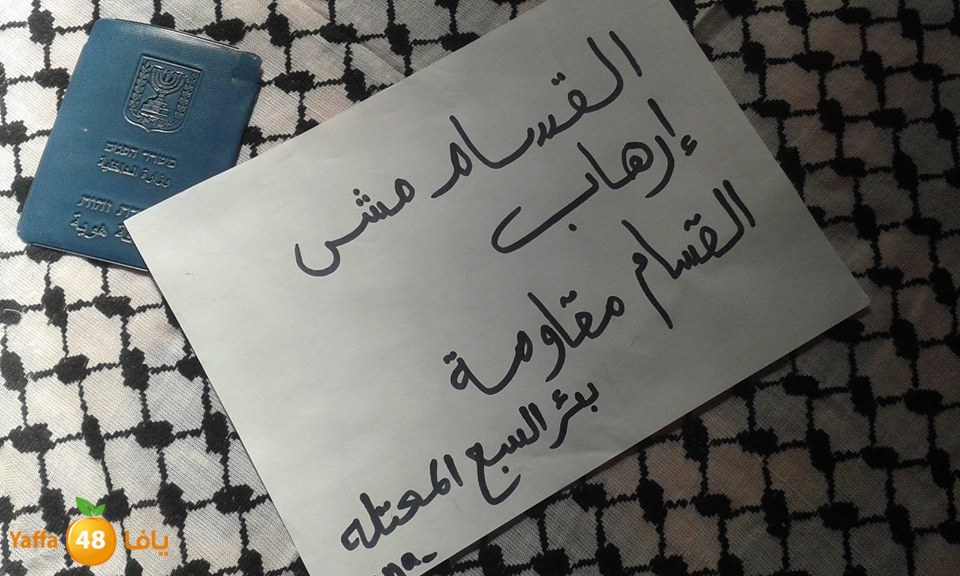 משרד הפנים
وزارة الداخلية
ת זהות
ة هوية
القسام مش
إرهاب
القسام مقاومة
بئر السبع المحتله
Yaffa 48 يافا